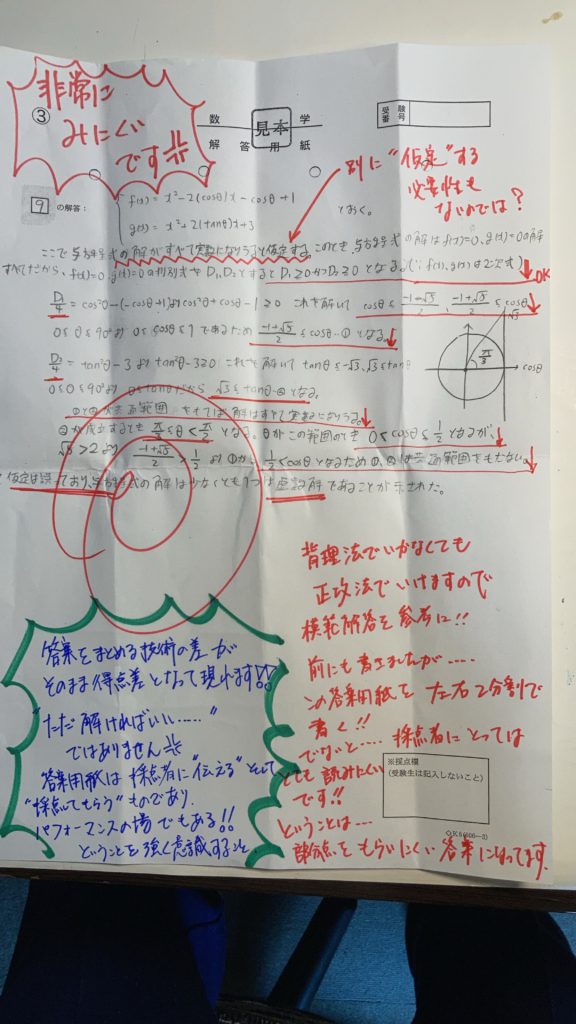 非常に
みにくい
です
③
数学
見本
解答用紙
受験
番号
別に"仮定"する
必要性も
ないのでは?
9 の解答:
f(x) = x²-2(cosθ)x - cosθ+1
g(x) = x²+2(tanθ)x+3
とおく。
ここで与方程式の解がすべて実数になりうると仮定する。このとき与方程式の解はf(x)=0、g(x)=0の解
すべてだから、f(x)=0、g(x)=0の判別式をD₁、D₂とするとD₁≧0かつD₂≧0となる(∵f(x)、g(x)は2次式)
OK
D₁/4 = cos²θ-(-cosθ+1)より cos²θ+cosθ-1≧0 これを解いて cosθ≦(-1-√5)/2、(-1+√5)/2≦cosθ
0≦θ≦90°より 0≦cosθ≦1であるため (-1+√5)/2≦cosθ…①となる。
D₂/4 = tan²θ-3より tan²θ-3≧0 これを解いて tanθ≦-√3、√3≦tanθ
0≦θ≦90°より 0≦tanθだから √3≦tanθ…②となる。
√3
π/3
cosθ
範囲をもてば、解はすべて実数になりうる。
②が成立するとき π/3≦θ<π/2 となる。θがこの範囲のとき 0<cosθ≦1/2 となるが、
√5>2より (-1+√5)/2>1/2 より ①から 1/2<cosθとなるため①、②は 範囲をもたない。
仮定は誤っており、与方程式の解は少なくとも1つは虚数解であることが示された。
背理法でいかなくても
正攻法でいけますので
模範解答を参考に!!
前にも書きましたが……
この答案用紙を左右2分割で
書く!!
でないと…… 採点者にとっては
とても読みにくい
です!!
ということは…
部分点をもらいにくい答案になってます.
答案をまとめる技術の差が
そのまま得点差となって現れます!!
"ただ解ければいい……"
ではありません
答案用紙は採点者に"伝える"そして
"採点してもらう"ものであり、
パフォーマンスの場でもある!!
ということを強く意識すること.
※採点欄
(受験生は記入しないこと)